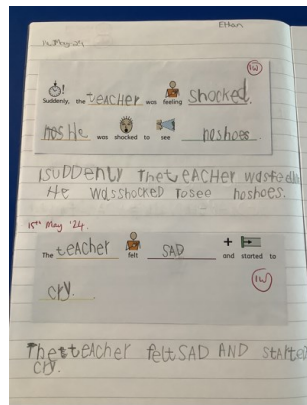 Ethan
IW
Suddenly, the teACHer was feeling shocked.
hosHe was shocked to see noshoes
ISUDDENLY ThetEACHer wasfedl
He wasshocked Tosee noshoes.
15th May '24.
The teAcher felt SAD and started to
cry.
IW
ThetteAcher feltSAD AND stArted
cry.